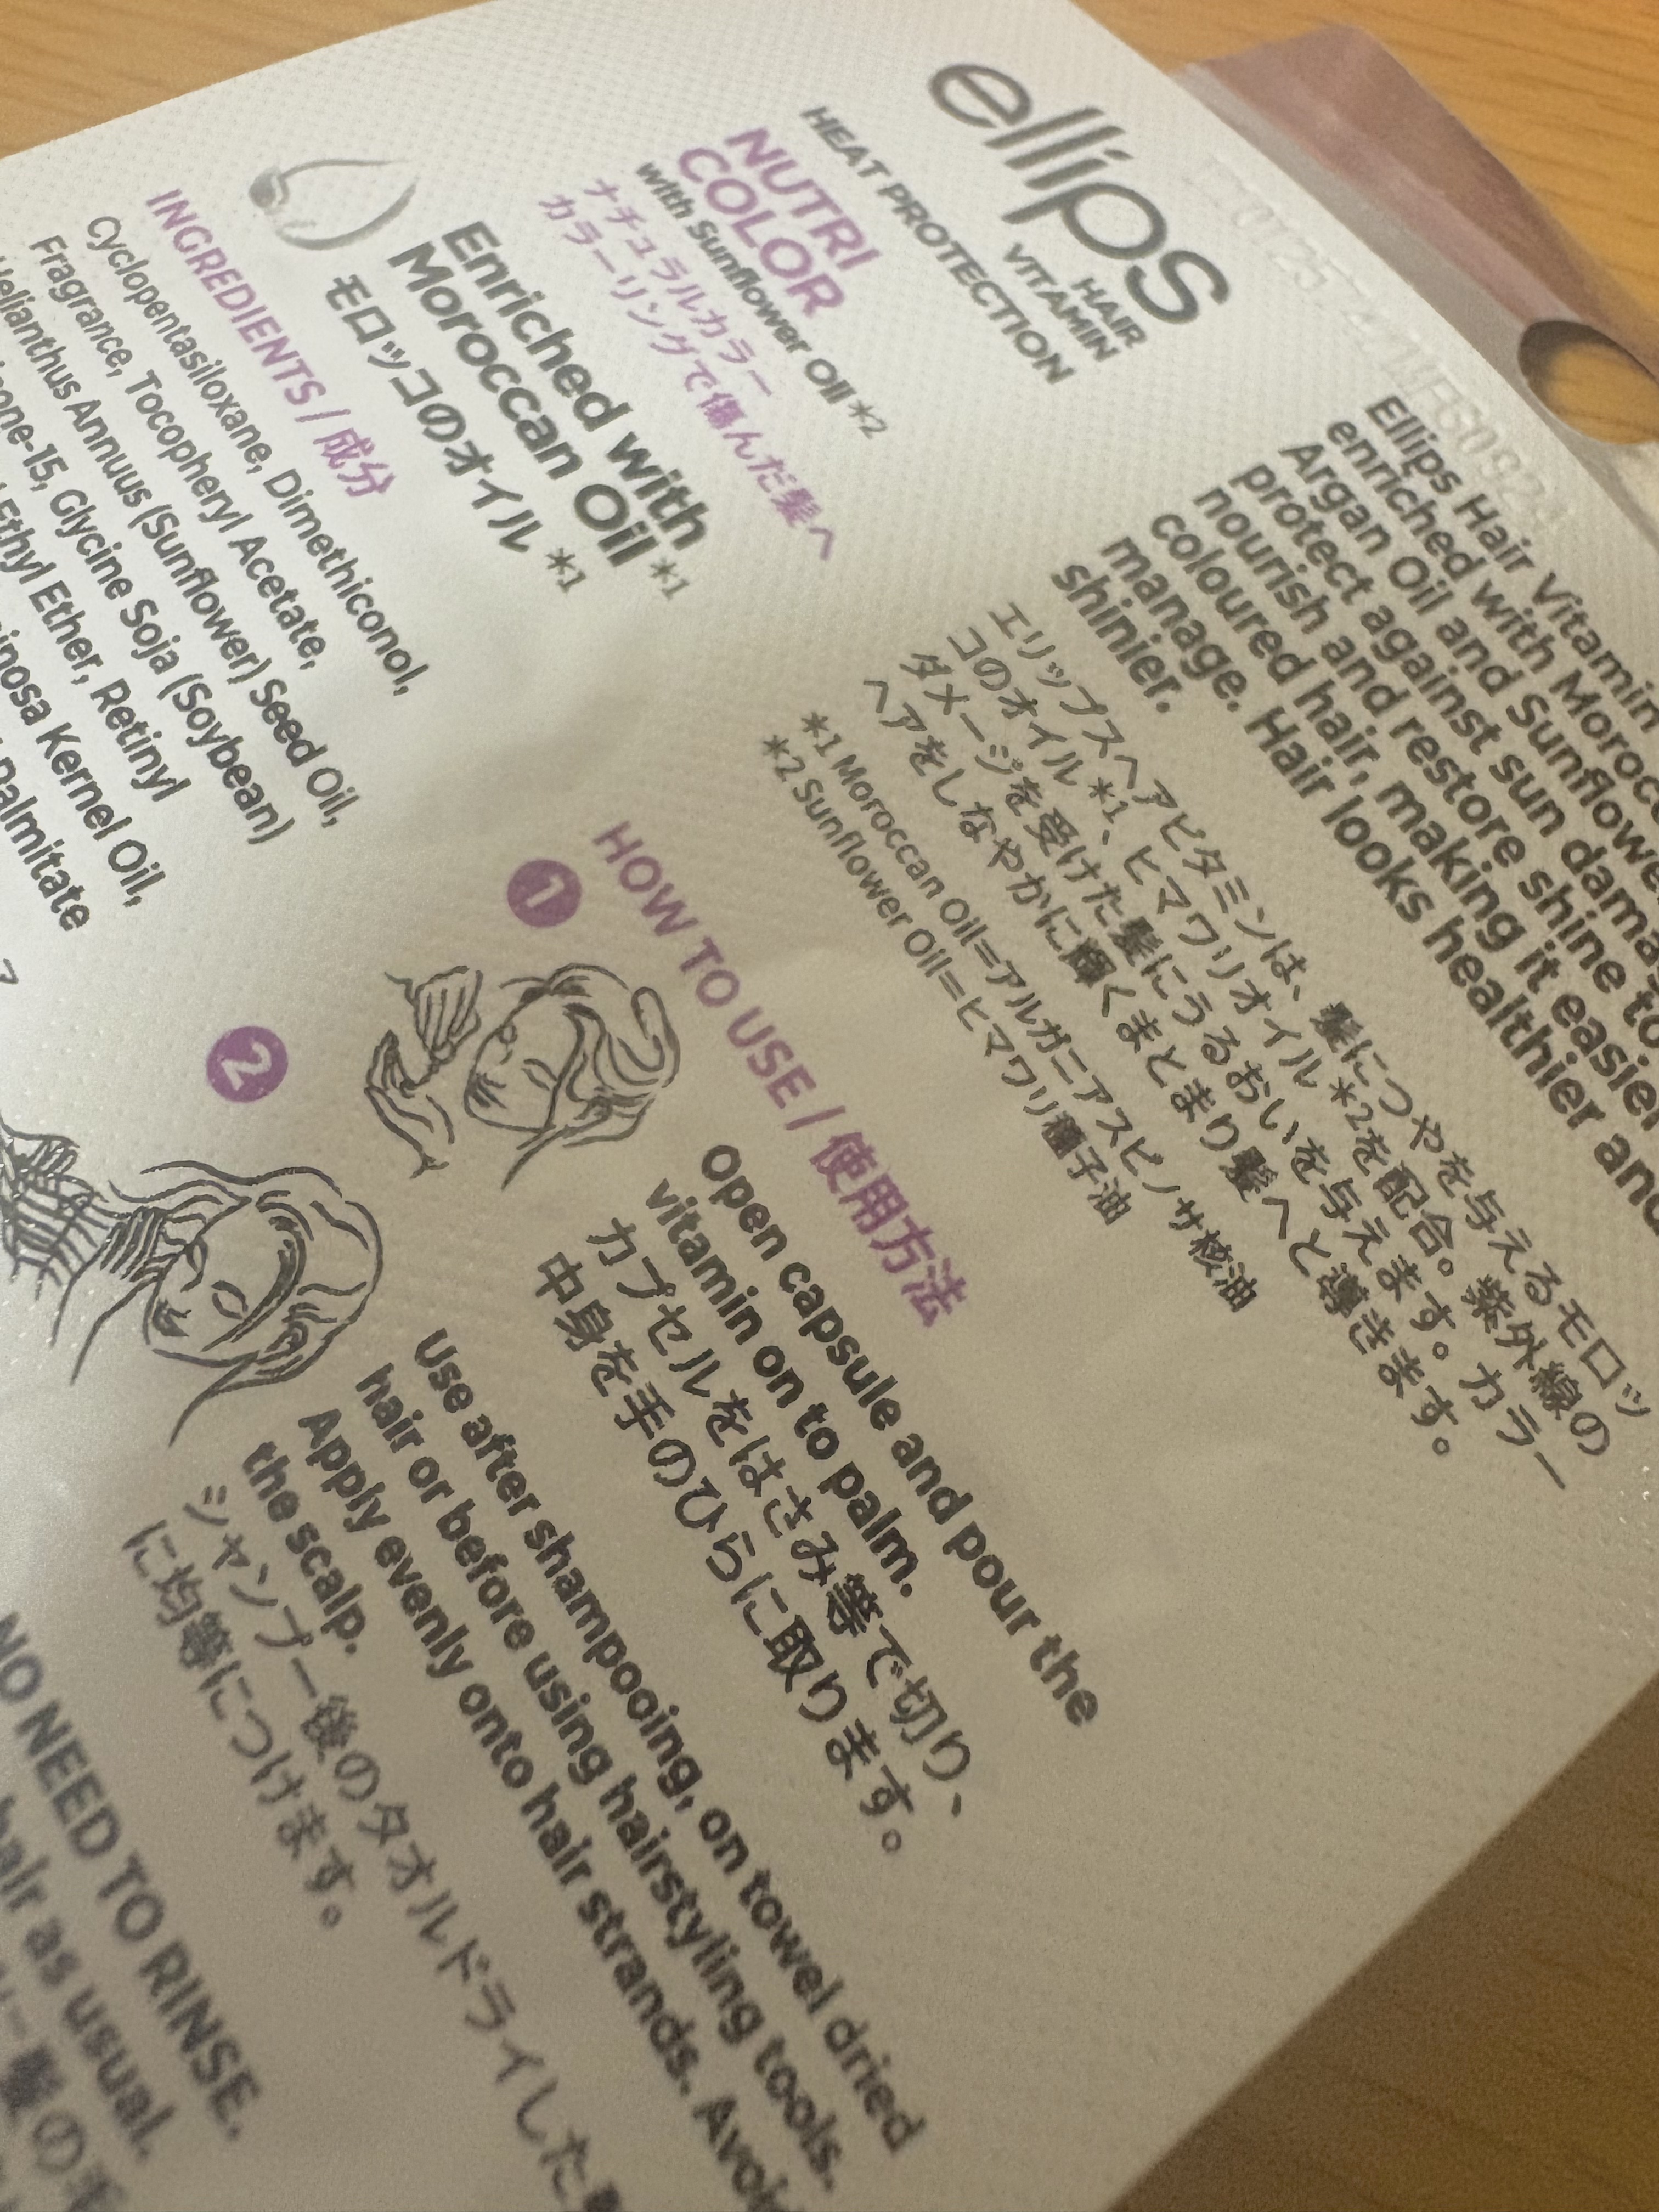 ellips
HAIR
VITAMIN
HEAT PROTECTION
NUTRI
COLOR
with Sunflower Oil *2
ナチュラルカラー
カラーリングで傷んだ髪へ
Enriched with
Moroccan Oil *1
モロッコのオイル *1
INGREDIENTS / 成分
Cyclopentasiloxane, Dimethiconol,
Fragrance, Tocopheryl Acetate,
Helianthus Annuus (Sunflower) Seed Oil,
-15, Glycine Soja (Soybean)
Ethyl Ether, Retinyl
Kernel Oil,
Palmitate
Ellips Hair Vitamin
enriched with
Argan Oil and
protect against sun
nourish and restore shine to
coloured hair, making it easier
manage. Hair looks healthier and
shinier.
エリップスヘアビタミンは、髪につやを与えるモロッ
コのオイル *1、ヒマワリオイル *2を配合。紫外線の
ダメージを受けた髪にうるおいを与えます。カラー
ヘアをしなやかに輝くまとまり髪へと導きます。
*1 Moroccan Oil=アルガニアスピノサ核油
*2 Sunflower Oil=ヒマワリ種子油
HOW TO USE / 使用方法
1
Open capsule and pour the
vitamin on to palm.
カプセルをはさみ等で切り、
中身を手のひらに取ります。
2
Use after shampooing, on towel dried
hair or before using hairstyling tools.
Apply evenly onto hair strands. Avoid
the scalp.
シャンプー後のタオルドライした
に均等につけます。
NO NEED TO RINSE.
hair as usual.
髪の毛